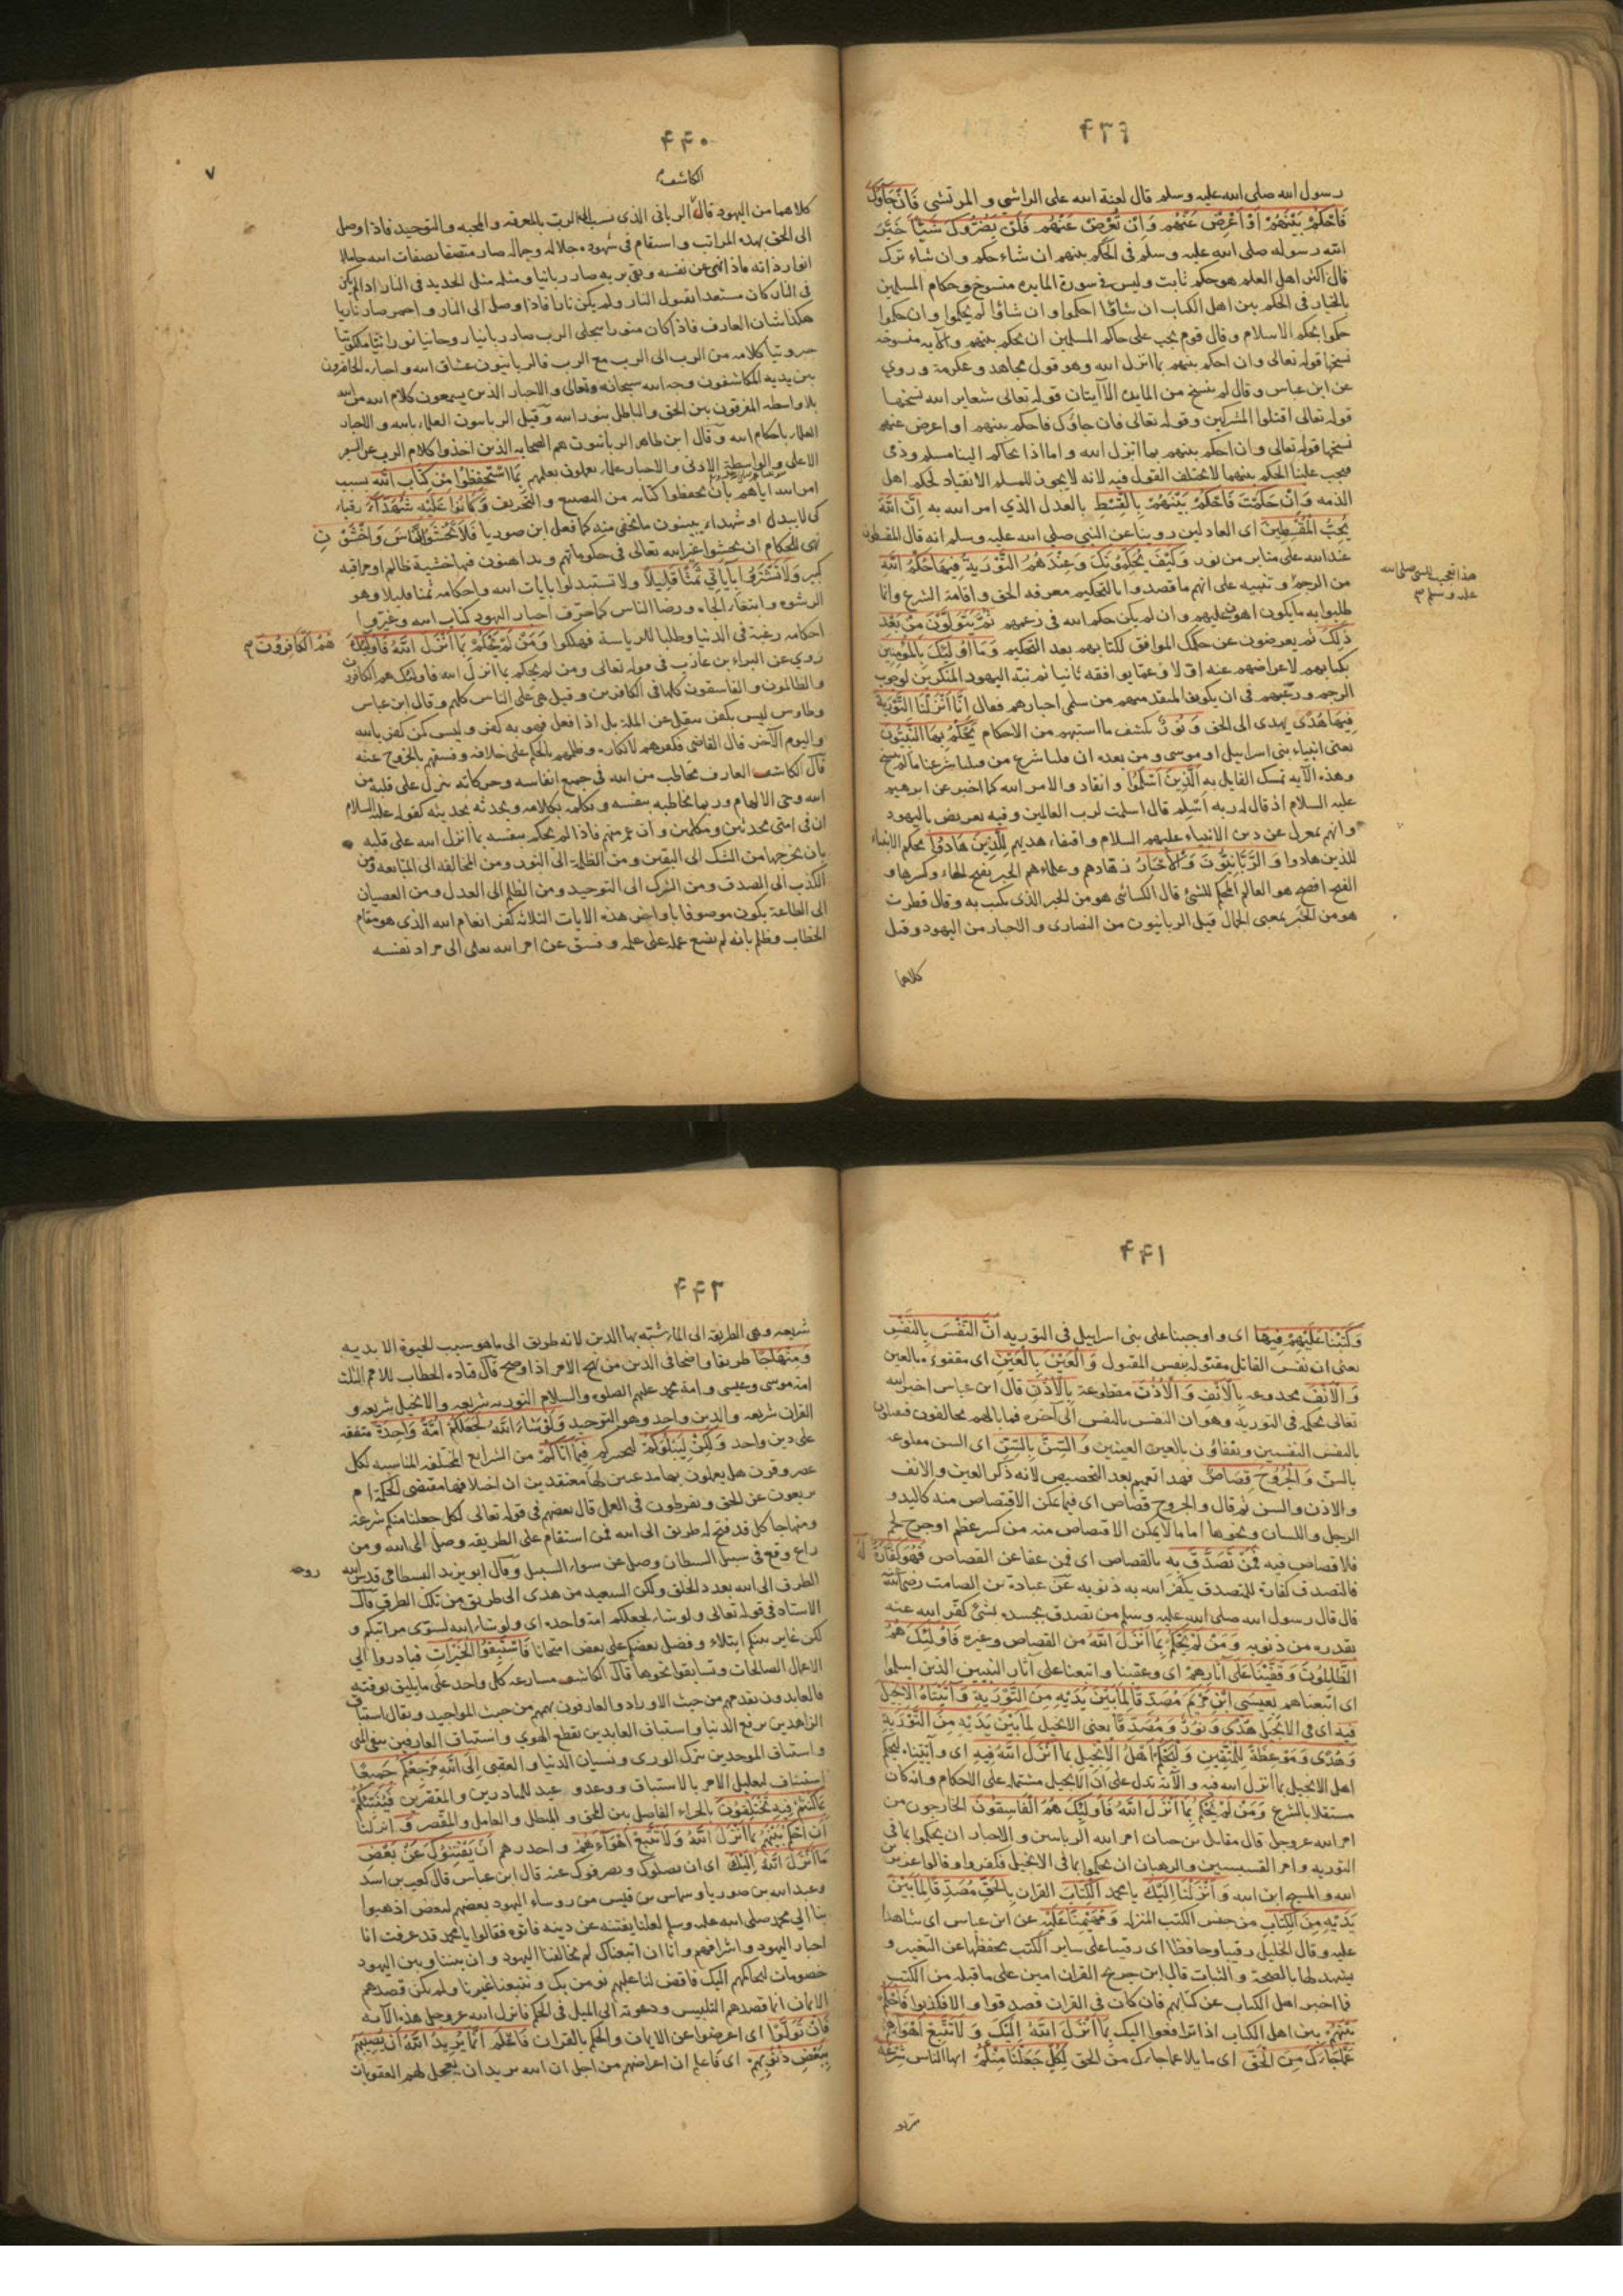 ۴۳۹
رسول الله صلى الله عليه وسلم قال لعنة الله على الراشي و المرتشي فَاِنْ جَاؤُكَ
فَاحْكُمْ بَيْنَهُمْ اَوْ اَعْرِضْ عَنْهُم وَاِنْ تُعْرِضْ عَنْهُم فَلَنْ يَضُرُّوكَ شَيْئًا خَيَّرَ
الله رسوله صلى الله عليه وسلم في الحكم بينهم ان شاء حكم وان شاء ترك
قال اكثر اهل العلم هو حكم ثابت وليس في سورة المايده منسوخ وحكام المسلمين
بالخيار في الحكم بين اهل الكتاب ان شاؤا احكموا وان شاؤا لم يحكموا وان حكموا
حكموا بحكم الاسلام وقال قوم يجب على حاكم المسلمين ان يحكم بينهم والآيه منسوخه
نسخها قوله تعالى وان احكم بينهم بما انزل الله وهو قول مجاهد وعكرمة وروي
عن ابن عباس وقال لم ينسخ من المايده الا آيتان قوله تعالى شعاير الله نسخها
قوله تعالى اقتلوا المشركين وقوله تعالى فان جاؤك فاحكم بينهم او اعرض عنهم
نسخها قوله تعالى وان احكم بينهم بما انزل الله واما اذا تحاكم الينا مسلم وذمى
فيجب علينا الحكم بينهما لا يختلف القول فيه لانه لا يجوز للمسلم الانقياد لحكم اهل
الذمه وَاِنْ حَكَمْتَ فَاحْكُمْ بَيْنَهُمْ بِالْقِسْطِ بالعدل الذي امر الله به اِنَّ اللهَ
يُحِبُّ الْمُقْسِطِينَ اى العادلين روينا عن النبي صلي الله عليه وسلم انه قال المقسطون
عند الله على منابر من نور وَكَيْفَ يُحَكِّمُونَكَ وَعِنْدَهُمُ التَّوْرَيةُ فِيهَا حُكْمُ اللهِ
هذا تعجيب للنبى صلى الله
عليه وسلم
من الرجم وتنبيه على انهم ما قصدوا بالتحكيم معرفه الحق واقامة الشرع وانما
طلبوا به ما يكون اهون عليهم وان لم يكن حكم الله في زعمهم ثُمَّ يَتَوَلَّوْنَ مِنْ بَعْدِ
ذَلِكَ ثم يعرضون عن حكمك الموافق لكتابهم بعد التحكيم وَمَا اُولَئِكَ بِالْمُؤْمِنِينَ
بكتابهم لاعراضهم عنه اولا وعما يوافقه ثانيا ثم نبه اليهود المنكرين لوجوب
الرجم ورغبهم في ان يكونوا كمتقدميهم من مسلمى احبارهم فقال اِنَّا اَنْزَلْنَا التَّوْرَيةَ
فِيهَا هُدًى يهدى الى الحق وَ نُورٌ يكشف ما استبهم من الاحكام يَحْكُمُ بِهَا النَّبِيُّونَ
يعنى انبياء بنى اسرائيل او موسى ومن بعده ان قلنا شرع من قبلنا شرعنا ما لم ينسخ
وهذه الآيه تمسك القايل به اَلَّذِينَ اَسْلَمُوا وانقادوا لامر الله كما اخبر عن ابرهيم
عليه السلام اذ قال له ربه اَسْلِم قال اسلمت لرب العالمين وفيه تعريض باليهود
وانهم بمعزل عن دين الانبياء عليهم السلام واقتفاء هديهم لِلَّذِينَ هَادُوا يحكم الانبياء
للذين هادوا وَ الرَّبَّانِيُّونَ وَالْاَحْبَارُ زهادهم وعلماءهم الحبر بفتح الحاء وكسرها و
الفتح افصح هو العالم المحكم للشئ قال الكسائى هو من الحبر الذى يكتب به وقال قطرب
هو من الحَبْر بمعنى الجمال قيل الربانيون من النصارى والاحبار من اليهود وقيل
كلاهما
۴۴۰
۷
الكاشف
كلاهما من اليهود قال الربانى الذى نسب الى الرب بالمعرفه والمحبه والتوحيد فاذا وصل
الى الحق بهذه المراتب واستقام فى شهوده جلاله وجماله صار متصفا بصفات الله حاملا
انوار ذاته فاذا فنى عن نفسه وبقى بربه صار ربانيا ومثله مثل الحديد فى النار اذا لم يكن
فى النار كان مستعدا لقبول النار ولم يكن نارا فاذا وصل الى النار واحمر صار ناريا
هكذا شان العارف فاذا كان منورا بتجلى الرب صار ربانيا روحانيا نورانيا ملكوتيا
جبروتيا كلامه من الرب الى الرب مع الرب فالربانيون عشاق الله واحباره الحاضرون
بين يديه المكاشفون وجه الله سبحانه وتعالى والاحبار الذين يسمعون كلام الله من الله
بلا واسطه المفرقون بين الحق والباطل بنور الله وقيل الربانيون العلماء بالله والاحبار
العلماء باحكام الله وقال ابن طاهر الربانيون هم الصحابه الذين اخذوا كلام الرب عن السفير
الاعلى والواسطة الادنى والاحبار علماء يعملون بعلمهم بِمَا اسْتُحْفِظُوا مِنْ كِتَابِ اللهِ بسبب
امر الله اياهم بان يحفظوا كتابه من التضييع و التحريف وَكَانُوا عَلَيْهِ شُهَدَاءَ رقباء
كى لا يبدل او شهداء يبينون ما يخفى منه كما فعل ابن صوريا فَلَا تَخْشَوُا النَّاسَ وَاخْشَوْنِ
نهى للحكام ان يخشوا غير الله تعالى فى حكوماتهم ويداهنون فيها خشية ظالم او مراقبه
كبير وَلَا تَشْتَرُوا بِآيَاتِي ثَمَنًا قَلِيلًا ولا تستبدلوا بايات الله واحكامه ثمنا قليلا وهو
الرشوه وابتغاء الجاه ورضا الناس كما حرّف احبار اليهود كتاب الله وغيروا
احكامه رغبة فى الدنيا وطلبا للرياسة فهلكوا وَمَنْ لَمْ يَحْكُمْ بِمَا اَنْزَلَ اللهُ فَاُولَئِكَ هُمُ الْكَافِرُونَ
روي عن البراء بن عازب فى قوله تعالى ومن لم يحكم بما انزل الله فاولئك هم الكافرون
والظالمون والفاسقون كلها فى الكافرين وقيل هى على الناس كلهم وقال ابن عباس
وطاوس ليس بكفر ينقل عن الملة بل اذا فعل فهو به كفر وليس كمن كفر بالله
واليوم الآخر قال القاضى فكفرهم لانكاره وظلمهم بالحكم على خلافه وفسقهم بالخروج عنه
قال الكاشف العارف مخاطب من الله فى جميع انفاسه وحركاته ينزل على قلبه من
الله وحى الالهام وربما يخاطبه بنفسه ويكلمه بكلامه ويحدثه بحديثه كقوله عليه السلام
ان فى امتى محدثين ومكلمين وان عمر منهم فاذا لم يحكم بنفسه بما انزل الله على قلبه
بان يخرجها من الشك الى اليقين ومن الظلمة الى النور ومن المخالفه الى المتابعه ومن
الكذب الى الصدق ومن الشرك الى التوحيد ومن الظلم الى العدل ومن العصيان
الى الطاعة يكون موصوفا باواخر هذه الايات الثلاثه كفر انعام الله الذى هو مقام
الخطاب وظلم بانه لم يضع عمله على علمه وفسق عن امر الله تعالى الى مراد نفسه
۴۴۱
وَكَتَبْنَا عَلَيْهِمْ فِيهَا اى واوجبنا على بنى اسرايل فى التوريه اَنَّ النَّفْسَ بِالنَّفْسِ
يعنى ان نفس القاتل مقتوله بنفس المقتول وَالْعَيْنَ بِالْعَيْنِ اى مفقوءه بالعين
وَ الْاَنْفَ مجدوعه بِالْاَنْفِ وَ الْاُذُنَ مقطوعة بِالْاُذُنِ قال ابن عباس اخبر الله
تعالى بحكمه فى التوريه وهو ان النفس بالنفس الى آخره فما بالهم يخالفون فيقتلون
بالنفس النفسين ويفقاؤن بالعين العينين وَالسِّنَّ بِالسِّنِّ اى السن مقلوعه
بالسن وَالْجُرُوحَ قِصَاصٌ فهذا تعميم بعد التخصيص لانه ذكر العين والانف
والاذن والسن ثم قال والجروح قصاص اى فيما يمكن الاقتصاص منه كاليد و
الرجل واللسان ونحوها اما ما لا يمكن الاقتصاص منه من كسر عظم او جرح لحم
فلا قصاص فيه فَمَنْ تَصَدَّقَ بِهِ بالقصاص اى فمن عفا عن القصاص فَهُوَ كَفَّارَةٌ لَهُ
فالتصدق كفارة للمتصدق يكفر الله به ذنوبه عن عبادة بن الصامت رضى الله
قال قال رسول الله صلى الله عليه وسلم من تصدق بجسده بشئ كفّر الله عنه
بقدره من ذنوبه وَمَنْ لَمْ يَحْكُمْ بِمَا اَنْزَلَ اللهُ من القصاص وغيره فَاُولَئِكَ هُمُ
الظَّالِمُونَ وَقَفَّيْنَا عَلَى اٰثَارِهِمْ اى وعقبنا واتبعنا على آثار النبيين الذين اسلموا
اى اتبعناهم بِعِيسَى ابْنِ مَرْيَمَ مُصَدِّقًا لِمَا بَيْنَ يَدَيْهِ مِنَ التَّوْرَيةِ وَآتَيْنَاهُ الْاِنْجِيلَ
فِيهِ اى فى الانجيل هُدًى وَ نُورٌ وَ مُصَدِّقًا يعنى الانجيل لِمَا بَيْنَ يَدَيْهِ مِنَ التَّوْرَيةِ
وَهُدًى وَمَوْعِظَةً لِلْمُتَّقِينَ وَلْيَحْكُمْ اَهْلُ الْاِنْجِيلِ بِمَا اَنْزَلَ اللهُ فِيهِ اى وآتيناه ليحكم
اهل الانجيل بما انزل الله فيه والآيه تدل على ان الانجيل مشتمله على الاحكام وانه كان
مستقلا بالشرع وَمَنْ لَمْ يَحْكُمْ بِمَا اَنْزَلَ اللهُ فَاُولَئِكَ هُمُ الْفَاسِقُونَ الخارجون من
امر الله عزوجل قال مقاتل بن حيان امر الله الربانيين والاحبار ان يحكموا بما فى
التوريه وامر القسيسين والرهبان ان يحكموا بما فى الانجيل فكفروا وقالوا عزير بن
الله والمسيح ابن الله وَاَنْزَلْنَا اِلَيْكَ يا محمد الْكِتَابَ القران بِالْحَقِّ مُصَدِّقًا لِمَا بَيْنَ
يَدَيْهِ مِنَ الْكِتَابِ من جنس الكتب المنزله وَمُهَيْمِنًا عَلَيْهِ عن ابن عباس اى شاهدا
عليه وقال الخليل رقيبا وحافظا اى رقيبا على ساير الكتب يحفظها عن التغيير و
يشهد لها بالصحة والثبات قال ابن جريج القران امين على ما قبله من الكتب
فما اخبر اهل الكتاب عن كتابهم فان كان فى القران فصدقوا والا فكذبوا فَاحْكُمْ
بَيْنَهُمْ بين اهل الكتاب اذا ترافعوا اليك بِمَا اَنْزَلَ اللهُ اِلَيْكَ وَ لَا تَتَّبِعْ اَهْوَاءَهُمْ
عَمَّا جَاءَكَ مِنَ الْحَقِّ اى مايلا عما جاءك من الحق لِكُلٍّ جَعَلْنَا مِنْكُمْ ايها الناس شِرْعَةً
۴۴۲
شريعه وهى الطريقه الى الماء شبّه بها الدين لانه طريق الى ما هو سبب الحيوة الابديه
وَمِنْهَاجًا طريقا واضحا فى الدين من نهج الامر اذا وضح قال قتاده الخطاب للامم الثلث
امة موسى وعيسى وامة محمد عليهم الصلوة والسلام التوريه شريعه والانجيل شريعه و
القران شريعه والدين واحد وهو التوحيد وَلَوْ شَاءَ اللهُ لَجَعَلَكُمْ اُمَّةً وَاحِدَةً متفقه
على دين واحد وَلَكِنْ لِيَبْلُوَكُمْ ليختبركم فِيمَا اٰتَاكُمْ من الشرايع المختلفه المناسبه لكل
عصر وقرن هل يعملون بها مذعنين لها معتقدين ان اختلافها مقتضى الحكمة ام
يزيغون عن الحق ويفرطون فى العمل قال بعضهم فى قوله تعالى لكل جعلنا منكم شرعة
ومنهاجا كل قد فتح له طريق الى الله فمن استقام على الطريقه وصل الى الله ومن
زاغ وقع فى سبيل الشيطان وضل عن سواء السبيل وقال ابو يزيد البسطامى قدس الله روحه
الطرق الى الله بعدد الخلق ولكن السعيد من هدى الى طريق من تلك الطرق قال
الاستاد فى قوله تعالى ولو شاء لجعلكم امة واحده اى ولو شاء الله لسوّى مراتبكم و
لكن غاير بينكم ابتلاء وفضل بعضكم على بعض امتحانا فَاسْتَبِقُوا الْخَيْرَاتِ فبادروا الى
الاعمال الصالحات وتسابقوا نحوها قال الكاشف مسارعه كل واحد على ما يليق بوقته
فالعابدون تقدمهم من حيث الاوراد والعارفون همهم من حيث المواجيد ويقال استباق
الزاهدين برفع الدنيا واستباق العابدين بقطع الهوى واستباق العارفين بنفى المنى
واستباق الموحدين بترك الورى ونسيان الدنيا والعقبى اِلَى اللهِ مَرْجِعُكُمْ جَمِيعًا
استيناف لتعليل الامر بالاستباق ووعد و وعيد للمبادرين والمقصرين فَيُنَبِّئُكُمْ
بِمَا كُنْتُمْ فِيهِ تَخْتَلِفُونَ بالجزاء الفاصل بين المحق والمبطل والعامل والمقصر وَ انزلنا
اَنِ احْكُمْ بَيْنَهُمْ بِمَا اَنْزَلَ اللهُ وَلَا تَتَّبِعْ اَهْوَاءَهُمْ و احذرهم اَنْ يَفْتِنُوكَ عَنْ بَعْضِ
مَا اَنْزَلَ اللهُ اِلَيْكَ اى ان يضلوك ويصرفوك عنه قال ابن عباس قال كعب بن اسد
وعبد الله بن صوريا وشاس بن قيس من روساء اليهود بعضهم لبعض اذهبوا
بنا الى محمد صلى الله عليه وسلم لعلنا نفتنه عن دينه فاتوه فقالوا يا محمد قد عرفت انا
احبار اليهود واشرافهم وانا ان اتبعناك لم يخالفنا اليهود وان بيننا وبين اليهود
خصومات نتحاكمهم اليك فاقض لنا عليهم نومن بك ويتبعنا غيرنا ولم يكن قصدهم
الايمان انما قصدهم التلبيس ودعوته الى الميل فى الحكم فانزل الله عزوجل هذه الآيه
فَاِنْ تَوَلَّوْا اى اعرضوا عن الايمان والحكم بالقران فَاعْلَمْ اَنَّمَا يُرِيدُ اللهُ اَنْ يُصِيبَهُمْ
بِبَعْضِ ذُنُوبِهِمْ اى فاعلم ان اعراضهم من اجل ان الله يريد ان يعجل لهم العقوبات